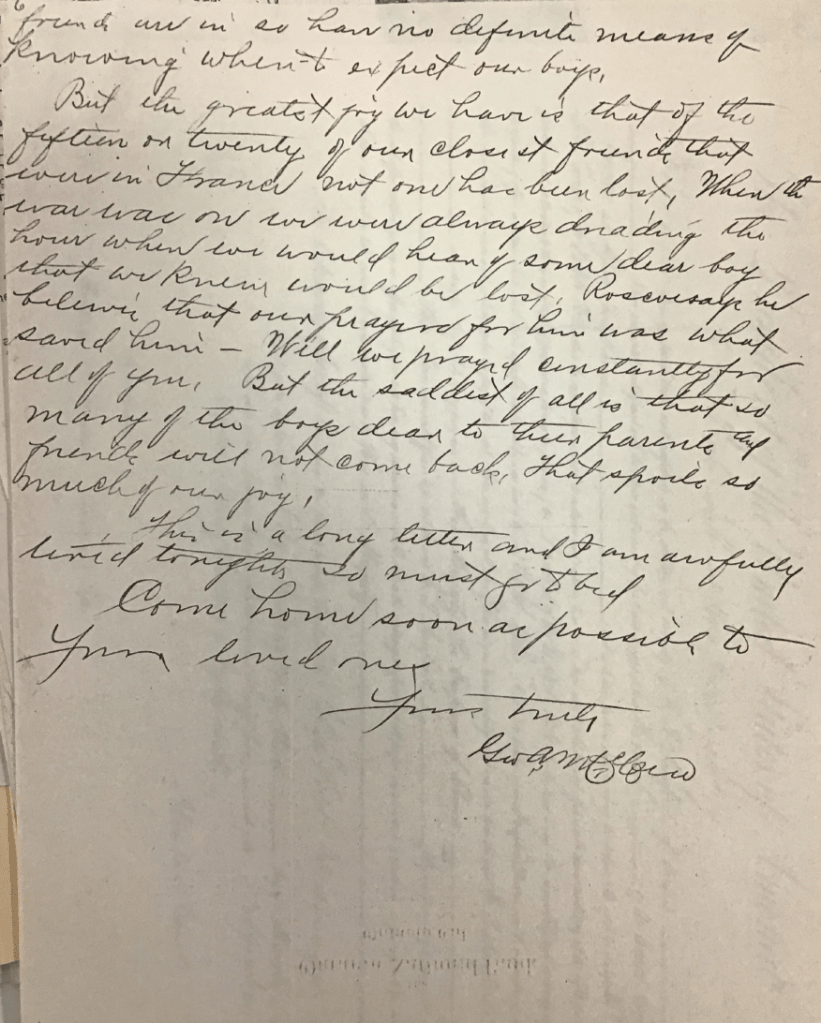 6
friends are in so have no definite means of
knowing when to expect our boys.
But the greatest joy we have is that of the
fifteen or twenty of our closest friends that
were in France not one has been lost, When the
war was on we were always dreading the
hour when we would hear of some dear boy
that we knew would be lost. Roscoe says he
believes that our prayers for him was what
saved him – Well we prayed constantly for
all of you. But the saddest of all is that so
many of the boys dear to their parents and
friends will not come back. That spoils so
much of our joy.
This is a long letter and I am awfully
tired tonight so must go to bed
Come home soon as possible to
Your loved ones
Yours truly
Geo A